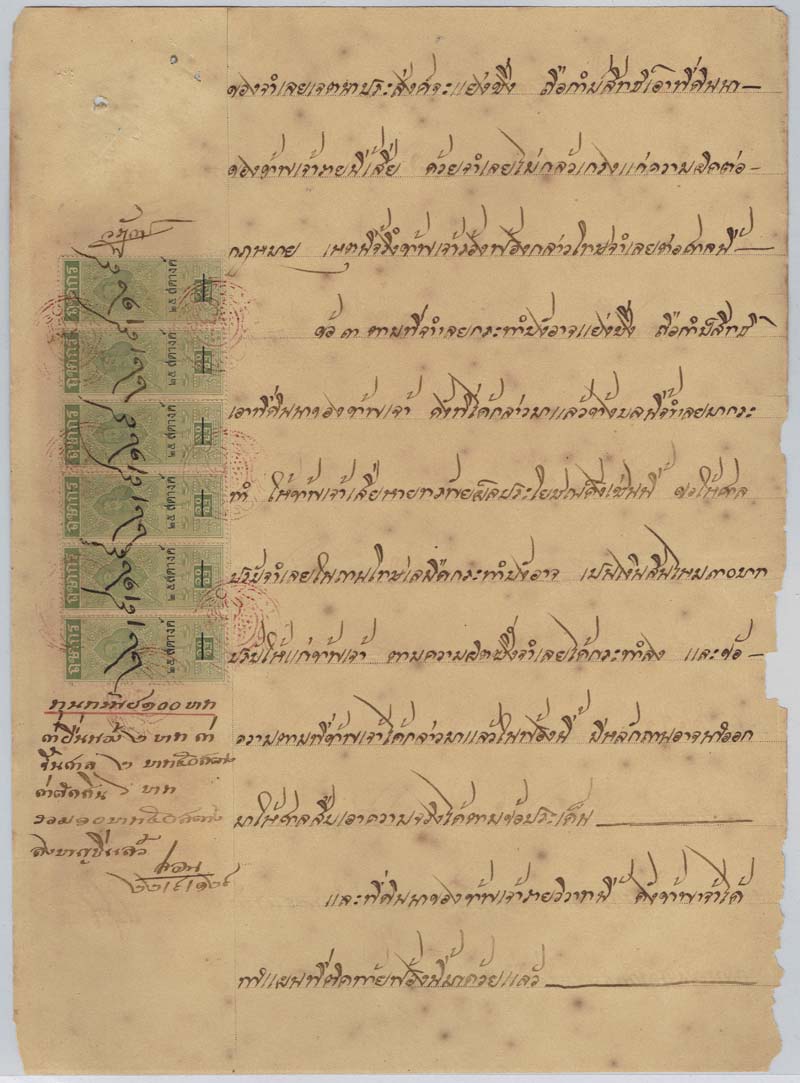 ของจำเลยเจตนาประสงค์จะแย่งชิง ถือกำม์สิทธิเอาที่ดินนา
ของข้าพเจ้ารายนี้เสีย ด้วยจำเลยไม่กลัวเกรงแก่ความผิดต่อ
กฎหมาย เหตุนี้จึงข้าพเจ้าร้องฟ้องกล่าวโทษจำเลยต่อศาลนี้
ข้อ ๓ ตามที่จำเลยกระทำบังอาจแย่งชิง ถือกำม์สิทธิ
เอาที่ดินนาของข้าพเจ้า ดังที่ได้กล่าวมาแล้วข้างบนนี้จำเลยมากระ
ทำ ให้ข้าพเจ้าเสียหายทรัพย์ผลประโยชน์ดังเช่นนี้ ขอให้ศาล
ปรับจำเลยในถานโทษละเมิดกระทำบังอาจ เปนเงินสินไหม ๓๐ บาท
ปรับให้แก่ข้าพเจ้า ตามความผิดซึ่งจำเลยได้กระทำลง และข้อ
ความตามที่ข้าพเจ้าได้กล่าวมาแล้วในฟ้องนี้ มีหลักถานอาจนำออก
มาให้ศาลสืบเอาความจริงได้ตามข้อประเด็น
และที่ดินนาของข้าพเจ้ารายวิวาทนี้ ดังข้าพเจ้าได้
ทำแผนที่ติดท้ายฟ้องนี้มาด้วยแล้ว
อชกร ๒๕ สตางค์
อชกร ๒๕ สตางค์
อชกร ๒๕ สตางค์
อชกร ๒๕ สตางค์
อชกร ๒๕ สตางค์
อชกร ๒๕ สตางค์
ทุนทรัพย์ ๑๐๐ บาท
ค่ายื่นฟ้อง ๒ บาท ค่า
ขึ้นศาล ๒ บาท ๕๐ สตางค์
ค่าตัดสิน ๖ บาท
รวม ๑๐ บาท ๕๐ สตางค์
ลงบาญชีแล้ว